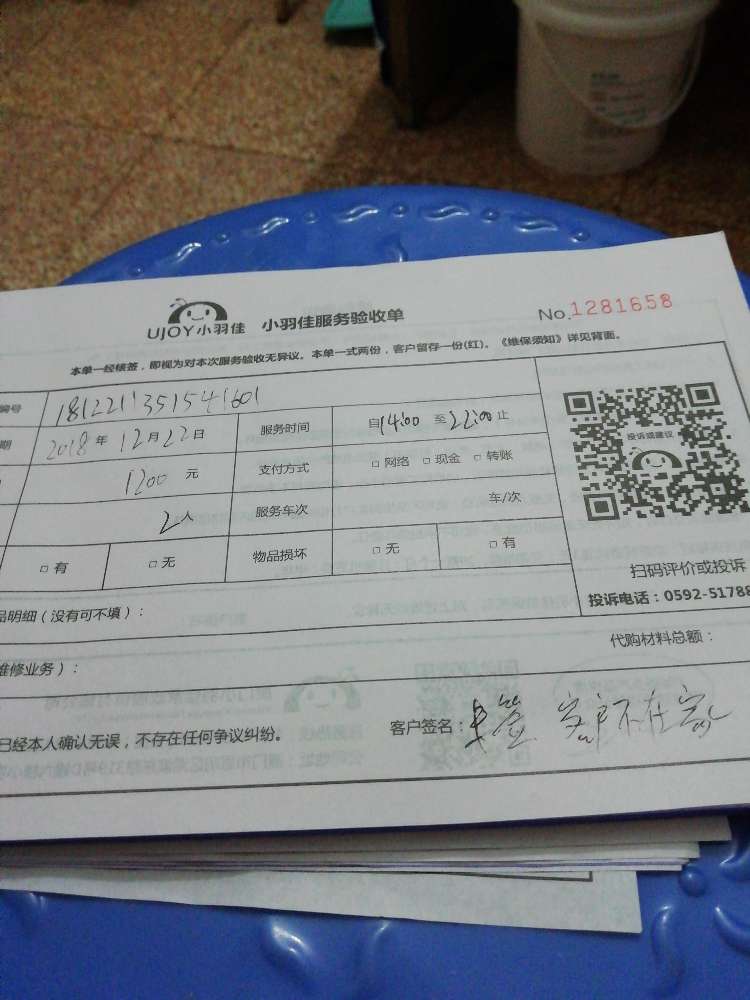 UJOY小羽佳 小羽佳服务验收单 No.1281658
本单一经核签，即视为对本次服务验收无异议。本单一式两份，客户留存一份(红)。《维保须知》详见背面。
编号 1812211351541601
期 2018年12月22日 服务时间 自14:00至22:00止
1200元 支付方式 □网络 □现金 □转账
2人 服务车次 车/次
□有 □无 物品损坏 □无 □有
投诉或建议
扫码评价或投诉
投诉电话：0592-51788
品明细（没有可不填）：
代购材料总额：
维修业务）：
已经本人确认无误，不存在任何争议纠纷。 客户签名： 签 客户不在家